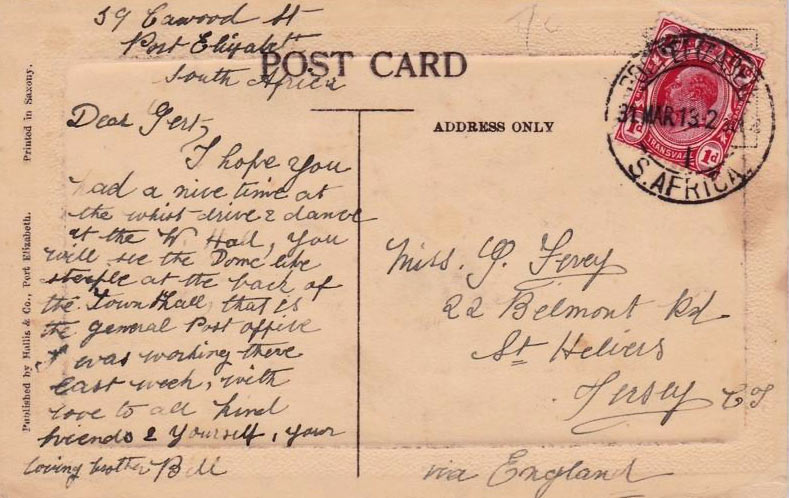 59 Cawood St
Port Elizabeth
South Africa
POST CARD
ADDRESS ONLY
Dear Gert,
I hope you
had a nice time at
the whist drive & dance
at the W. Hall, you
will see the Dome like
steeple at the back of
the Town Hall, that is
the general Post office
I was working there
last week, with
love to all kind
friends & yourself, your
loving brother Bill
Miss. G.
22 Belmont Rd
St Heliers
Jersey C I
via England
PORT ELIZABETH
31 MAR 13
S. AFRICA
TRANSVAAL
1d
1d
Printed in Saxony.
Published by Hallis & Co., Port Elizabeth.